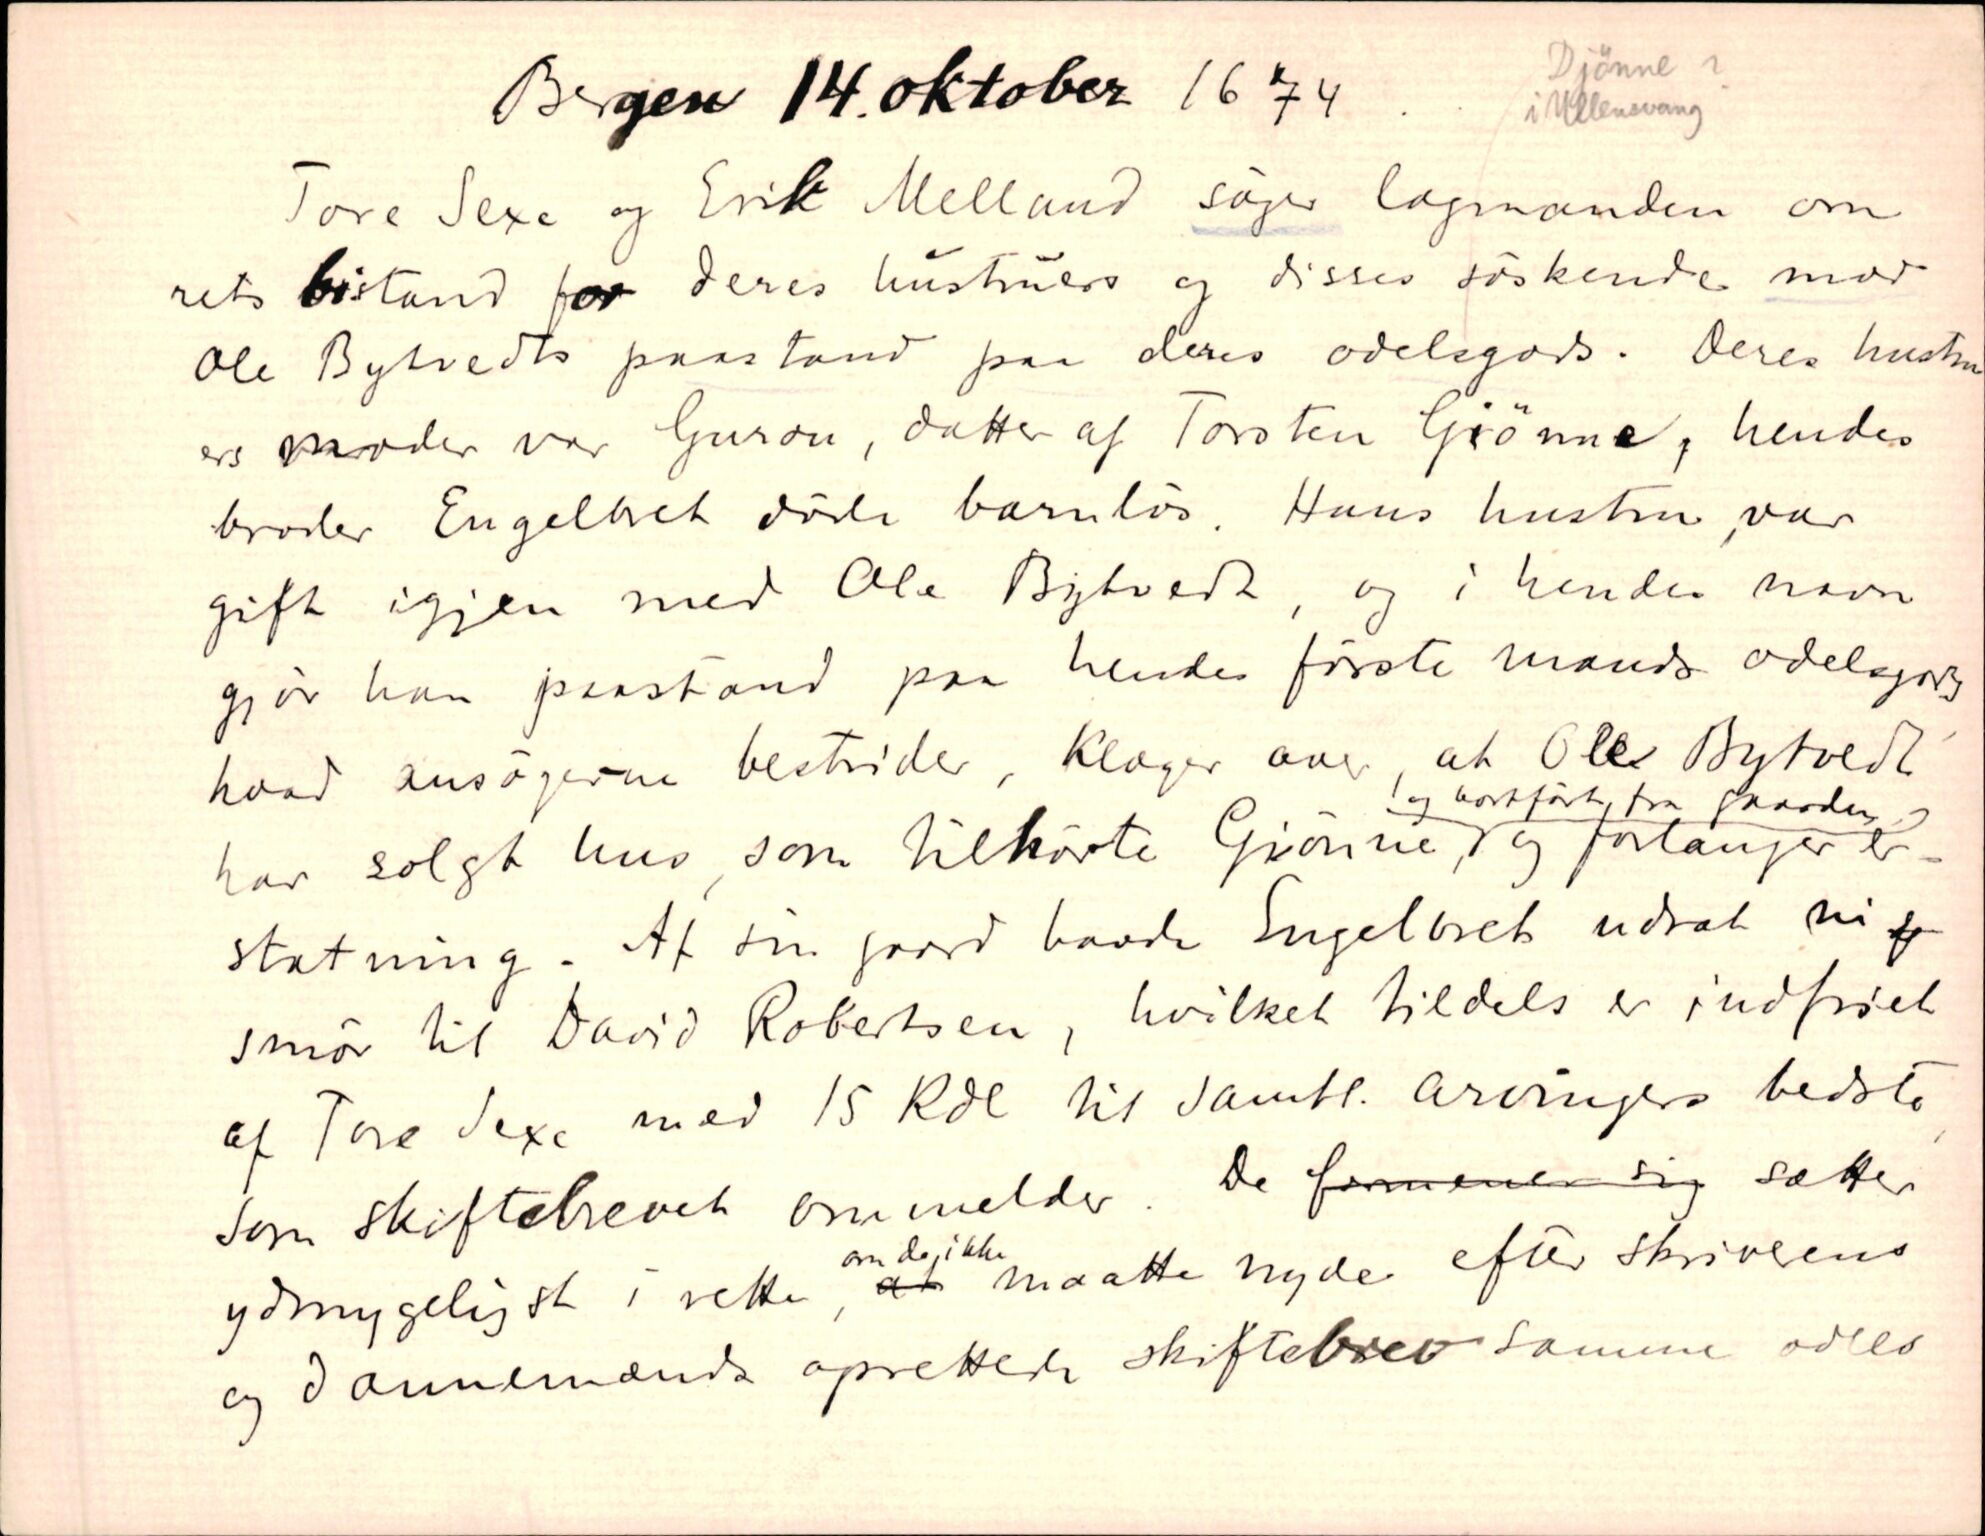 Bergen 14. oktober 1674.
Djönne
i Ullensvang
Tore Sexe og Erik Melland söger lagmanden om
rets bistand for deres hustruers og disses söskende mod
Ole Bytvedts paastand paa deres odelsgods. Deres hustru
ers moder var Guron, datter af Torsten Giönne, hendes
broder Engelbret döde barnlös. Hans hustru var
gift igjen med Ole Bytvedt, og i hendes navn
gjör han paastand paa hendes förste mands odelsgods,
hvad ansögerne bestrider, klager over, at Ole Bytvedt
og bortfört fra gaarden,
har solgt hus, som tilhörte Giönne, og forlanger er-
statning. Af sin gaard havde Engelbret udsat ni
smör til David Robertsen, hvilket tildels er indfriet
af Tore Sexe med 15 Rdl til samtl. arvingers bedste,
som skiftebrevet ommelder. De formener sig sætter
om de ikke
ydmygeligst i rette, at maatte nyde efter skriverens
og dannemænds oprettede skiftebrev samme odels